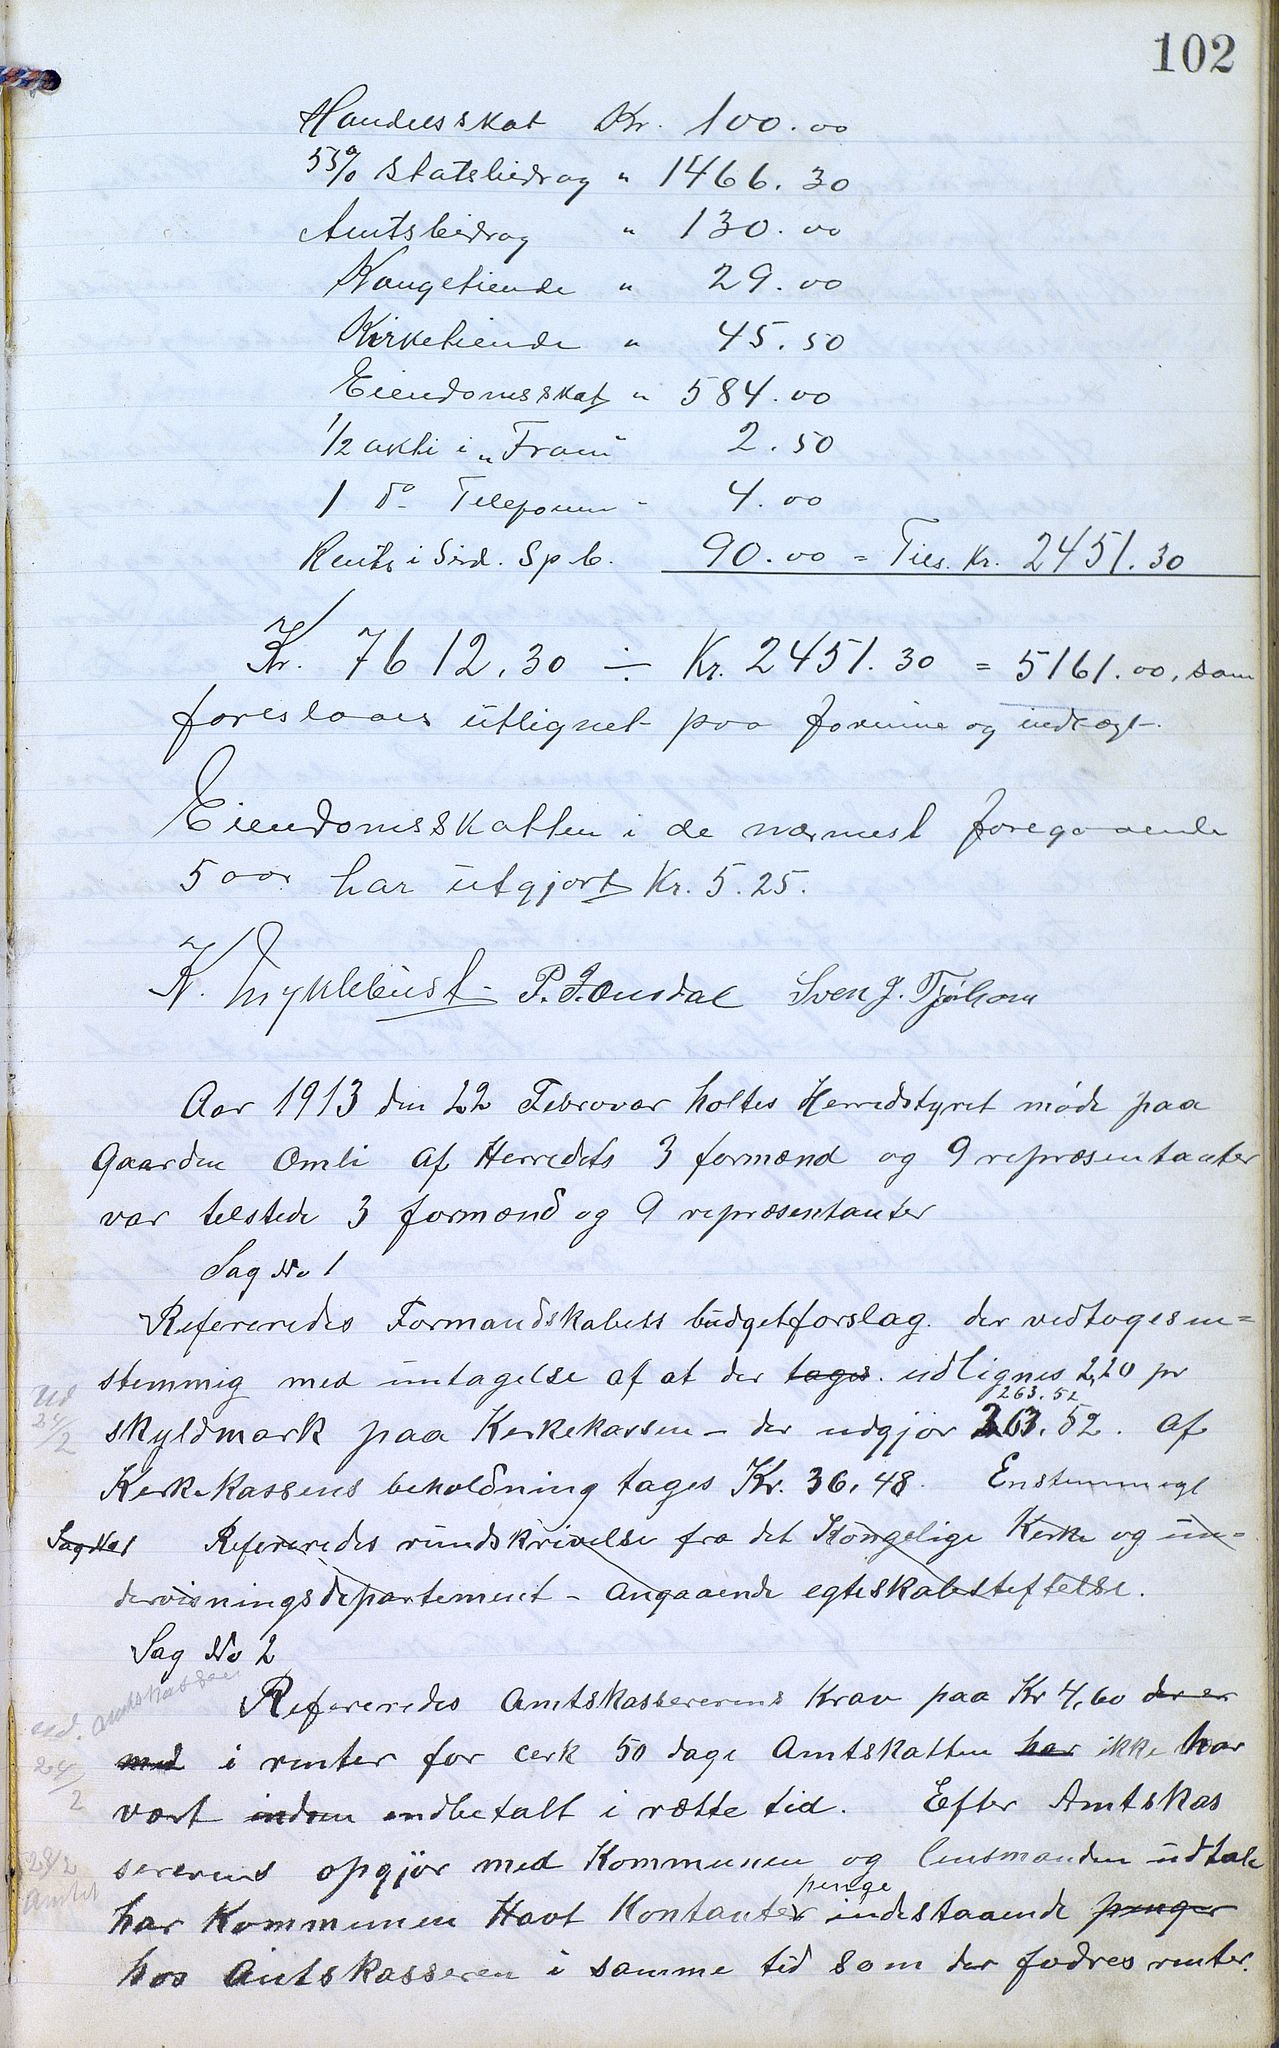 102
Handelsskat Kr. 100.00
55% Statsbidrag " 1466.30
Amtsbidrag " 130.00
Kongetiende " 29.00
Kirketiende " 45.50
Eiendomsskat " 584.00
1/2 akti i "Fram" 2.50
1 do Telefonen - 4.00
Rente i Sird. Spb. 90.00 = Tils. Kr. 2451.30
Kr. 7612.30 ÷ Kr. 2451.30 = 5161.00, som
foreslaaes utlignet paa formue og indtægt.
Eiendomsskatten i de nærmest foregaaende
5 aar har utgjort Kr. 5.25.
K. Myklebust P. Ousdal Sven J. Tjørhom
Aar 1913 den 22 Februar holtes Herredstyret møde paa
Gaarden Omli af Herredets 3 formænd og 9 repræsentanter
var telstede 3 formænd og 9 repræsentanter
Sag No 1
Refereredes Formandskabets budgetforslag. der vedtoges en=
stemmig med untagelse af at der tages. udlignes 2,20 pr
263.52
Ud
24/2
skyldmark paa Kerkekassen - der udgjør 263.52. Af
Kerkekassens beholdning tages Kr. 36,48. Enstemmegt
Sag No 1 Refereredes rundskrivelse fra det Kongelige Kerke og un=
dervisningsdepartement - angaaende egteskabsteftelse.
Sag No 2
ud. Amtskasserer
24/2
Refereredes Amtskassererens Krav paa Kr 4,60 der er
med i renter for cerk 50 dage Amtskatten har ikke har
vært indsen indbetalt i rætte tid. Efter Amtskas
28/2
Amtet
sererens opgjør med Kommunen og lensmanden udtale
penge
har Kommunen Havt Kontanter indestaaende penger
hos Amtskasseren i samme tid som der fodres renter.